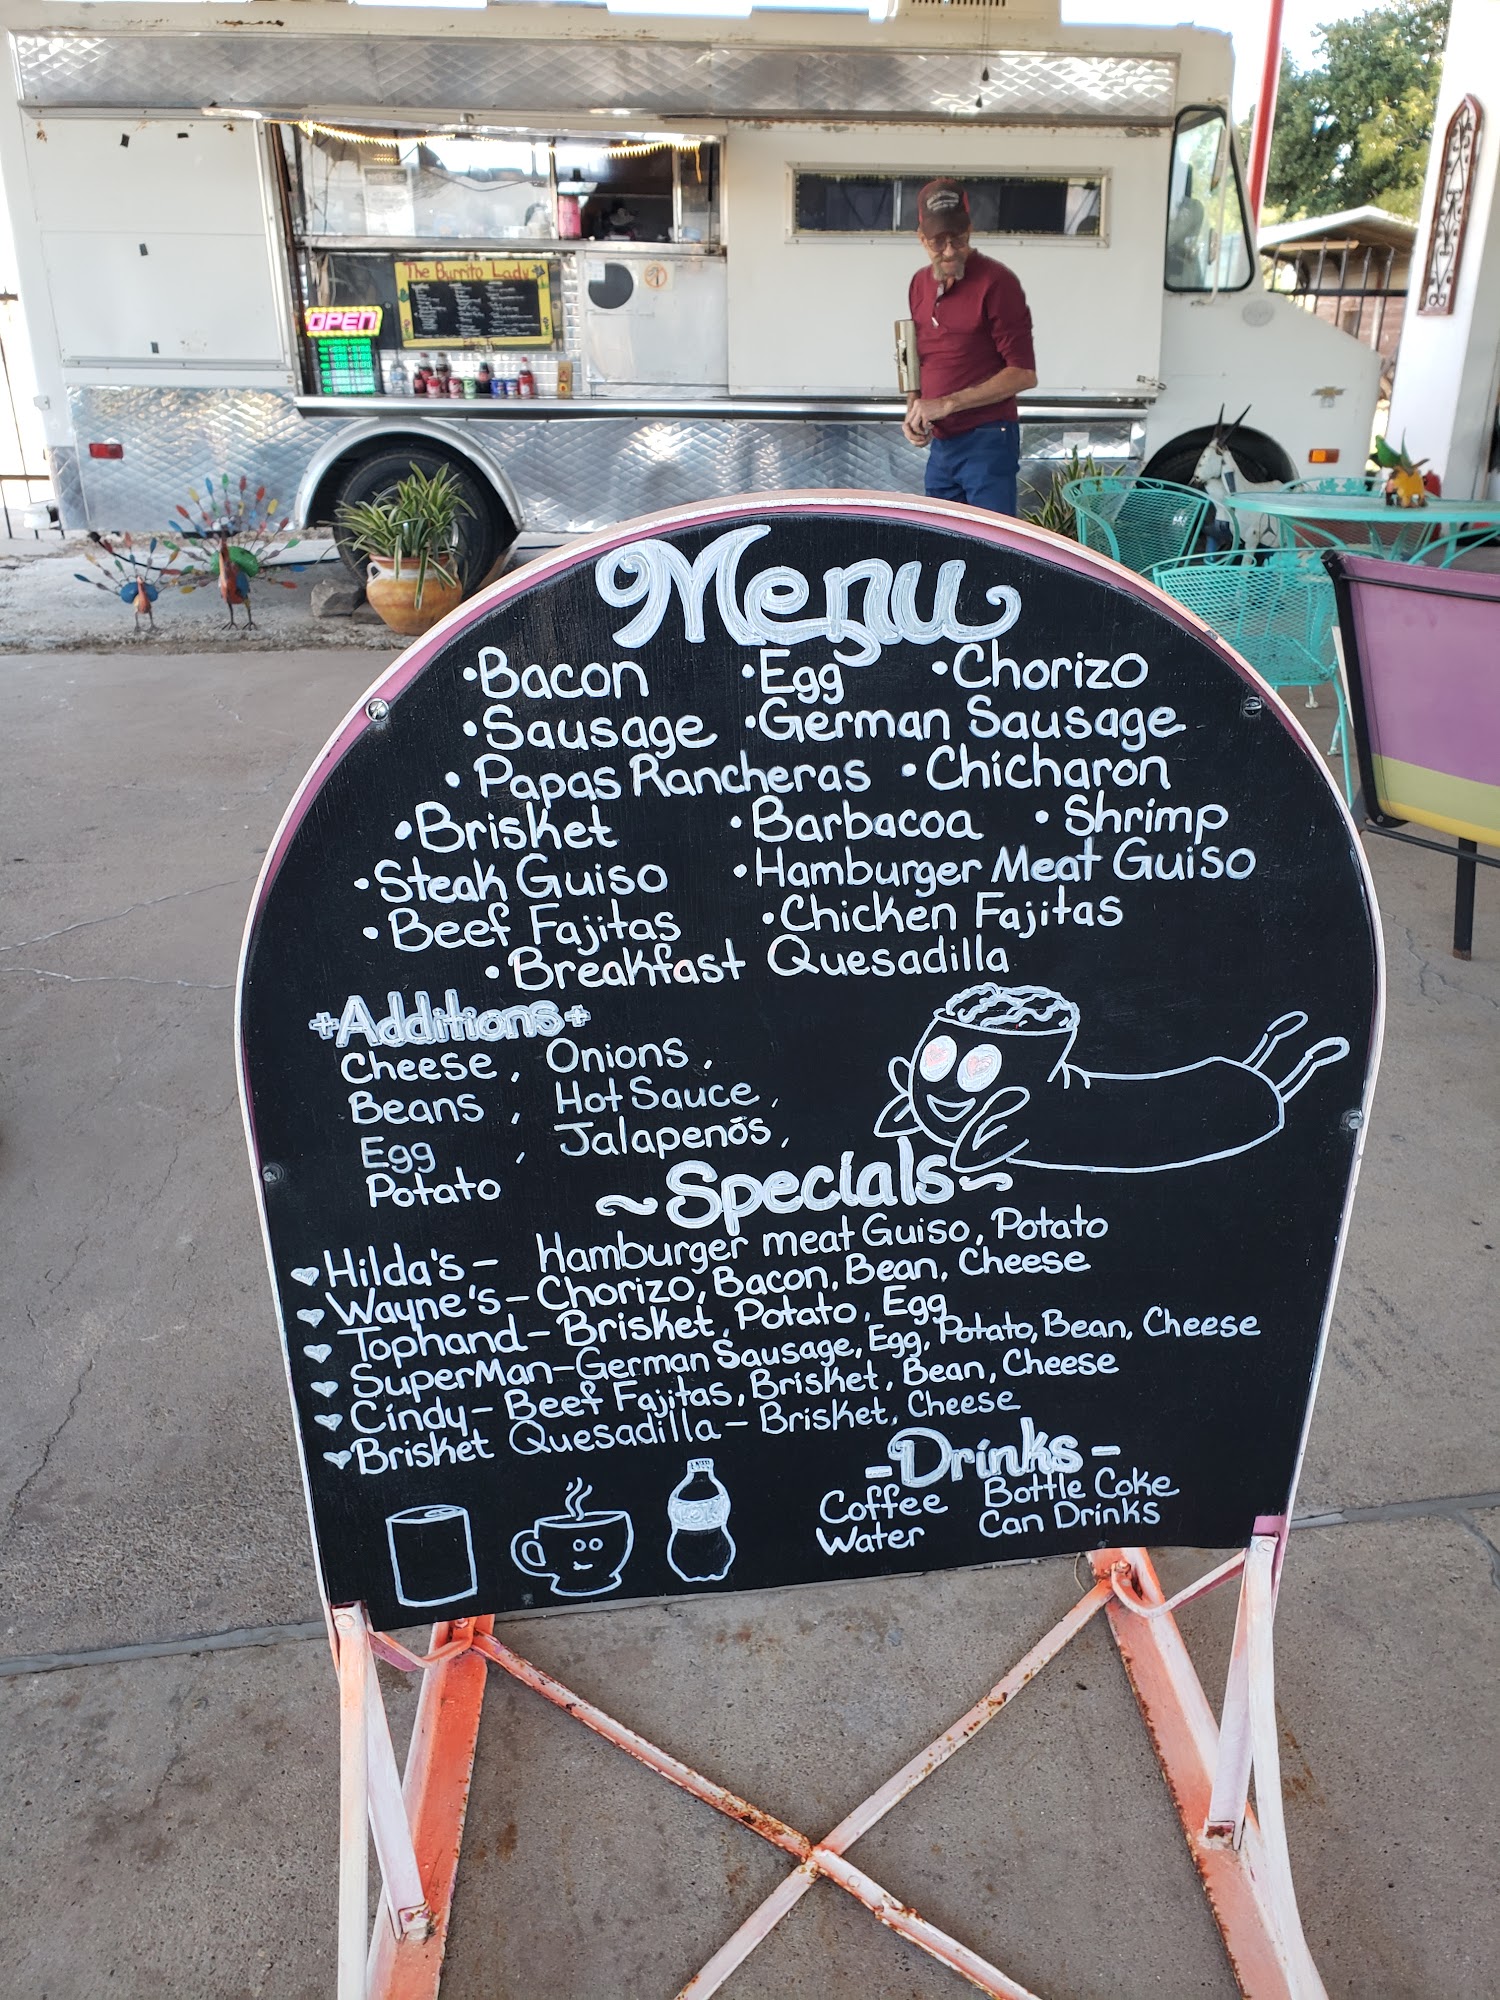 The Burrito Lady
OPEN
Menu
•Bacon •Egg •Chorizo
•Sausage •German Sausage
•Papas Rancheras •Chicharon
•Brisket •Barbacoa •Shrimp
•Steak Guiso •Hamburger Meat Guiso
•Beef Fajitas •Chicken Fajitas
•Breakfast Quesadilla
+Additions+
Cheese, Onions,
Beans, Hot Sauce,
Egg, Jalapenós,
Potato
~Specials~
♥Hilda's- Hamburger meat Guiso, Potato
♥Wayne's-Chorizo, Bacon, Bean, Cheese
♥Tophand-Brisket, Potato, Egg
♥SuperMan-German Sausage, Egg, Potato, Bean, Cheese
♥Cindy-Beef Fajitas, Brisket, Bean, Cheese
♥Brisket Quesadilla-Brisket, Cheese
-Drinks-
Coffee Bottle Coke
Water Can Drinks